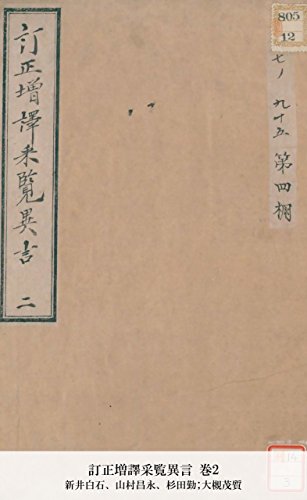 訂正增譯采覧異言 二
805
12
七ノ九十五 第四棚
訂正増譯采覧異言 巻2
新井白石、山村昌永、杉田勤;大槻茂質